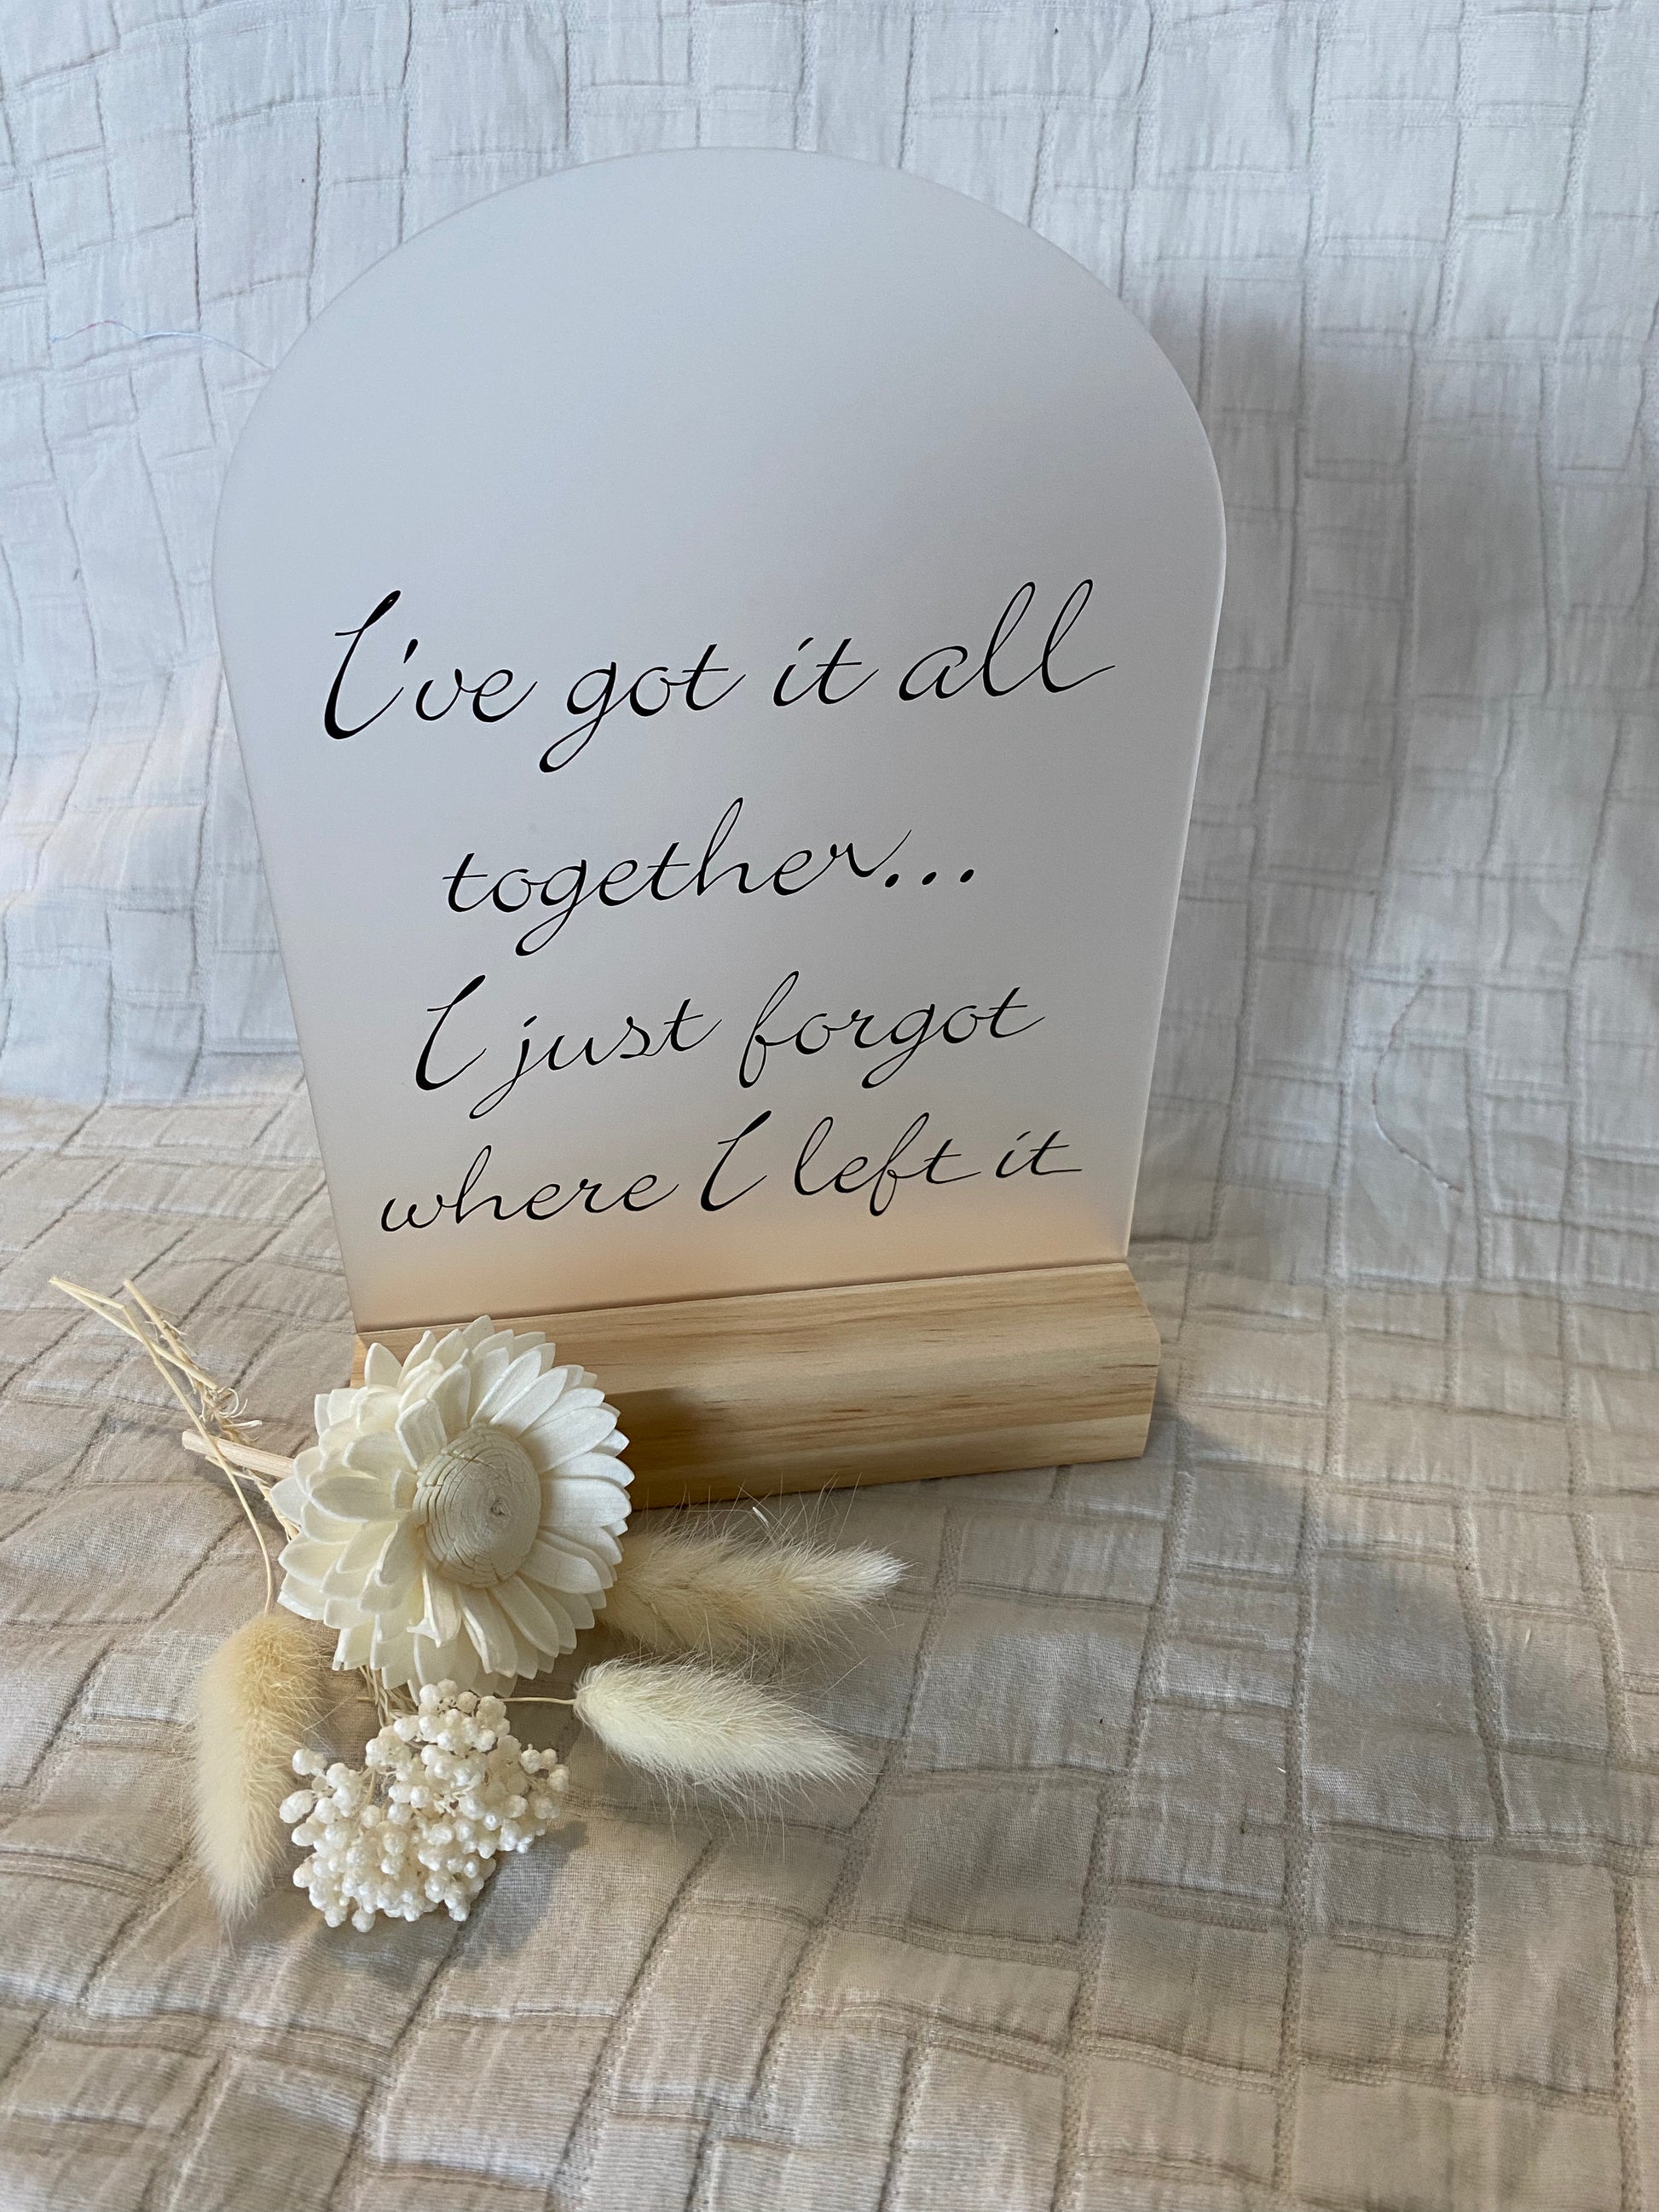 I've got it all
together...
I just forgot
where I left it